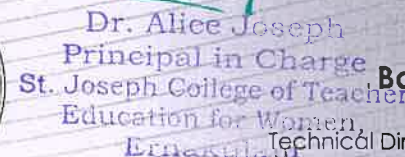 Dr. Alice Joseph
Principal in Charge
St. Joseph College of Teacher
Education for Women,
Ernakulam
Bo
Technical Dir